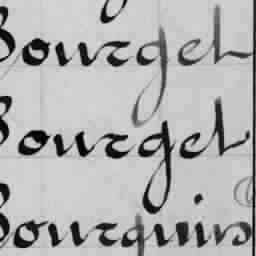 Bourgel
Bourgel
Bourquin